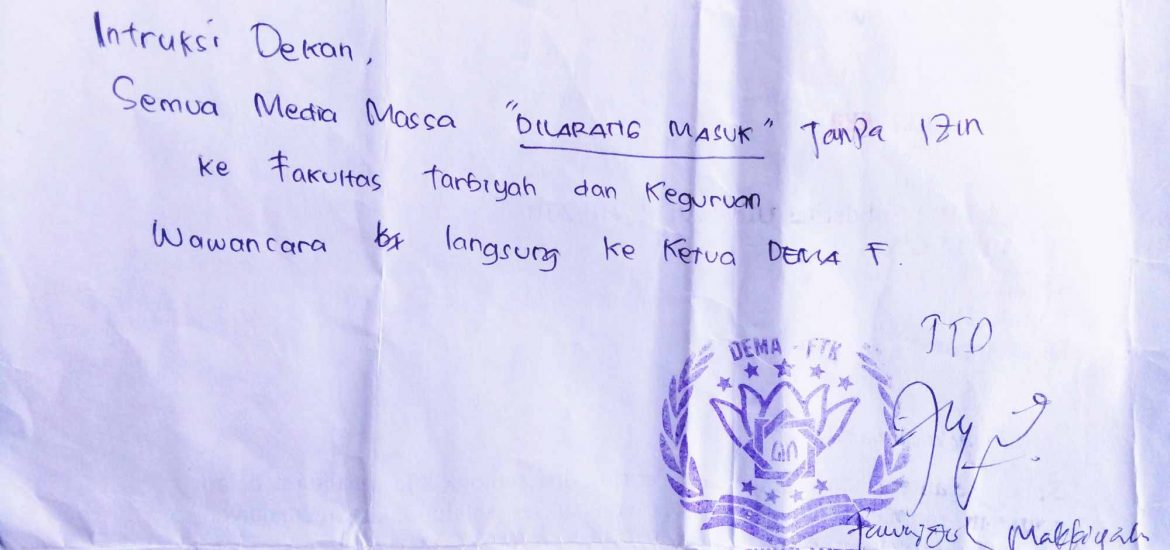 Intruksi Dekan,
Semua Media Massa "DILARANG MASUK" Tanpa Izin
ke Fakultas tarbiyah dan Keguruan
Wawancara langsung ke Ketua DEMA F.
TTD
DEMA - FTK